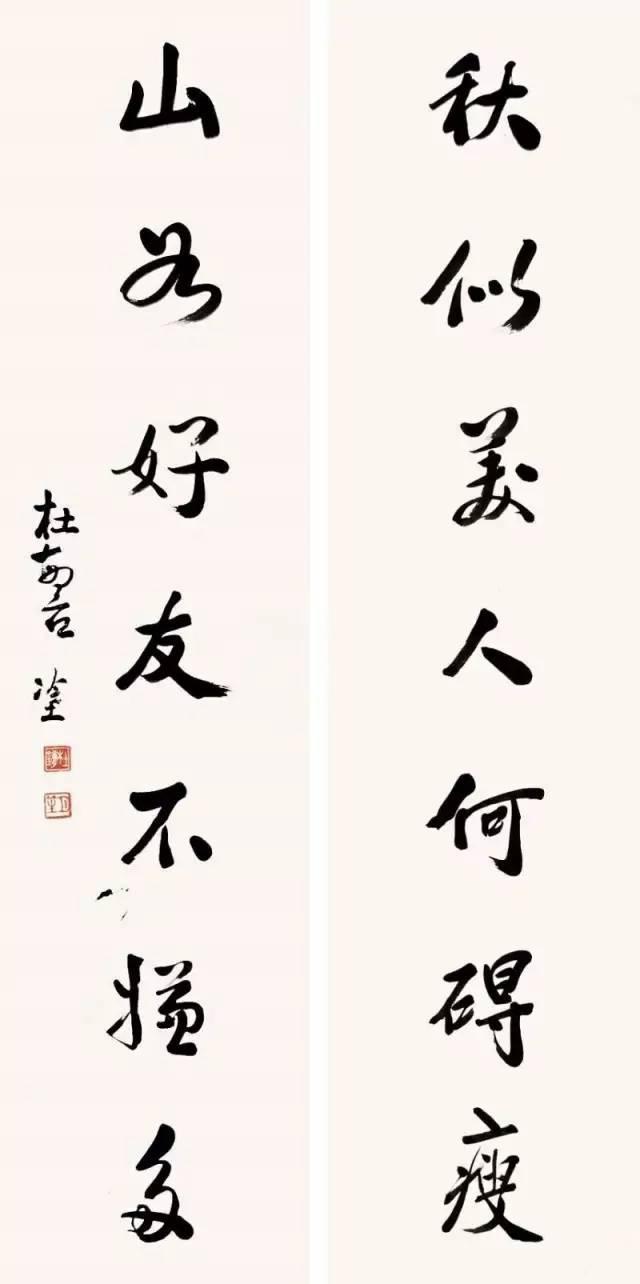 秋似美人何碍瘦
山如好友不嫌多
杜